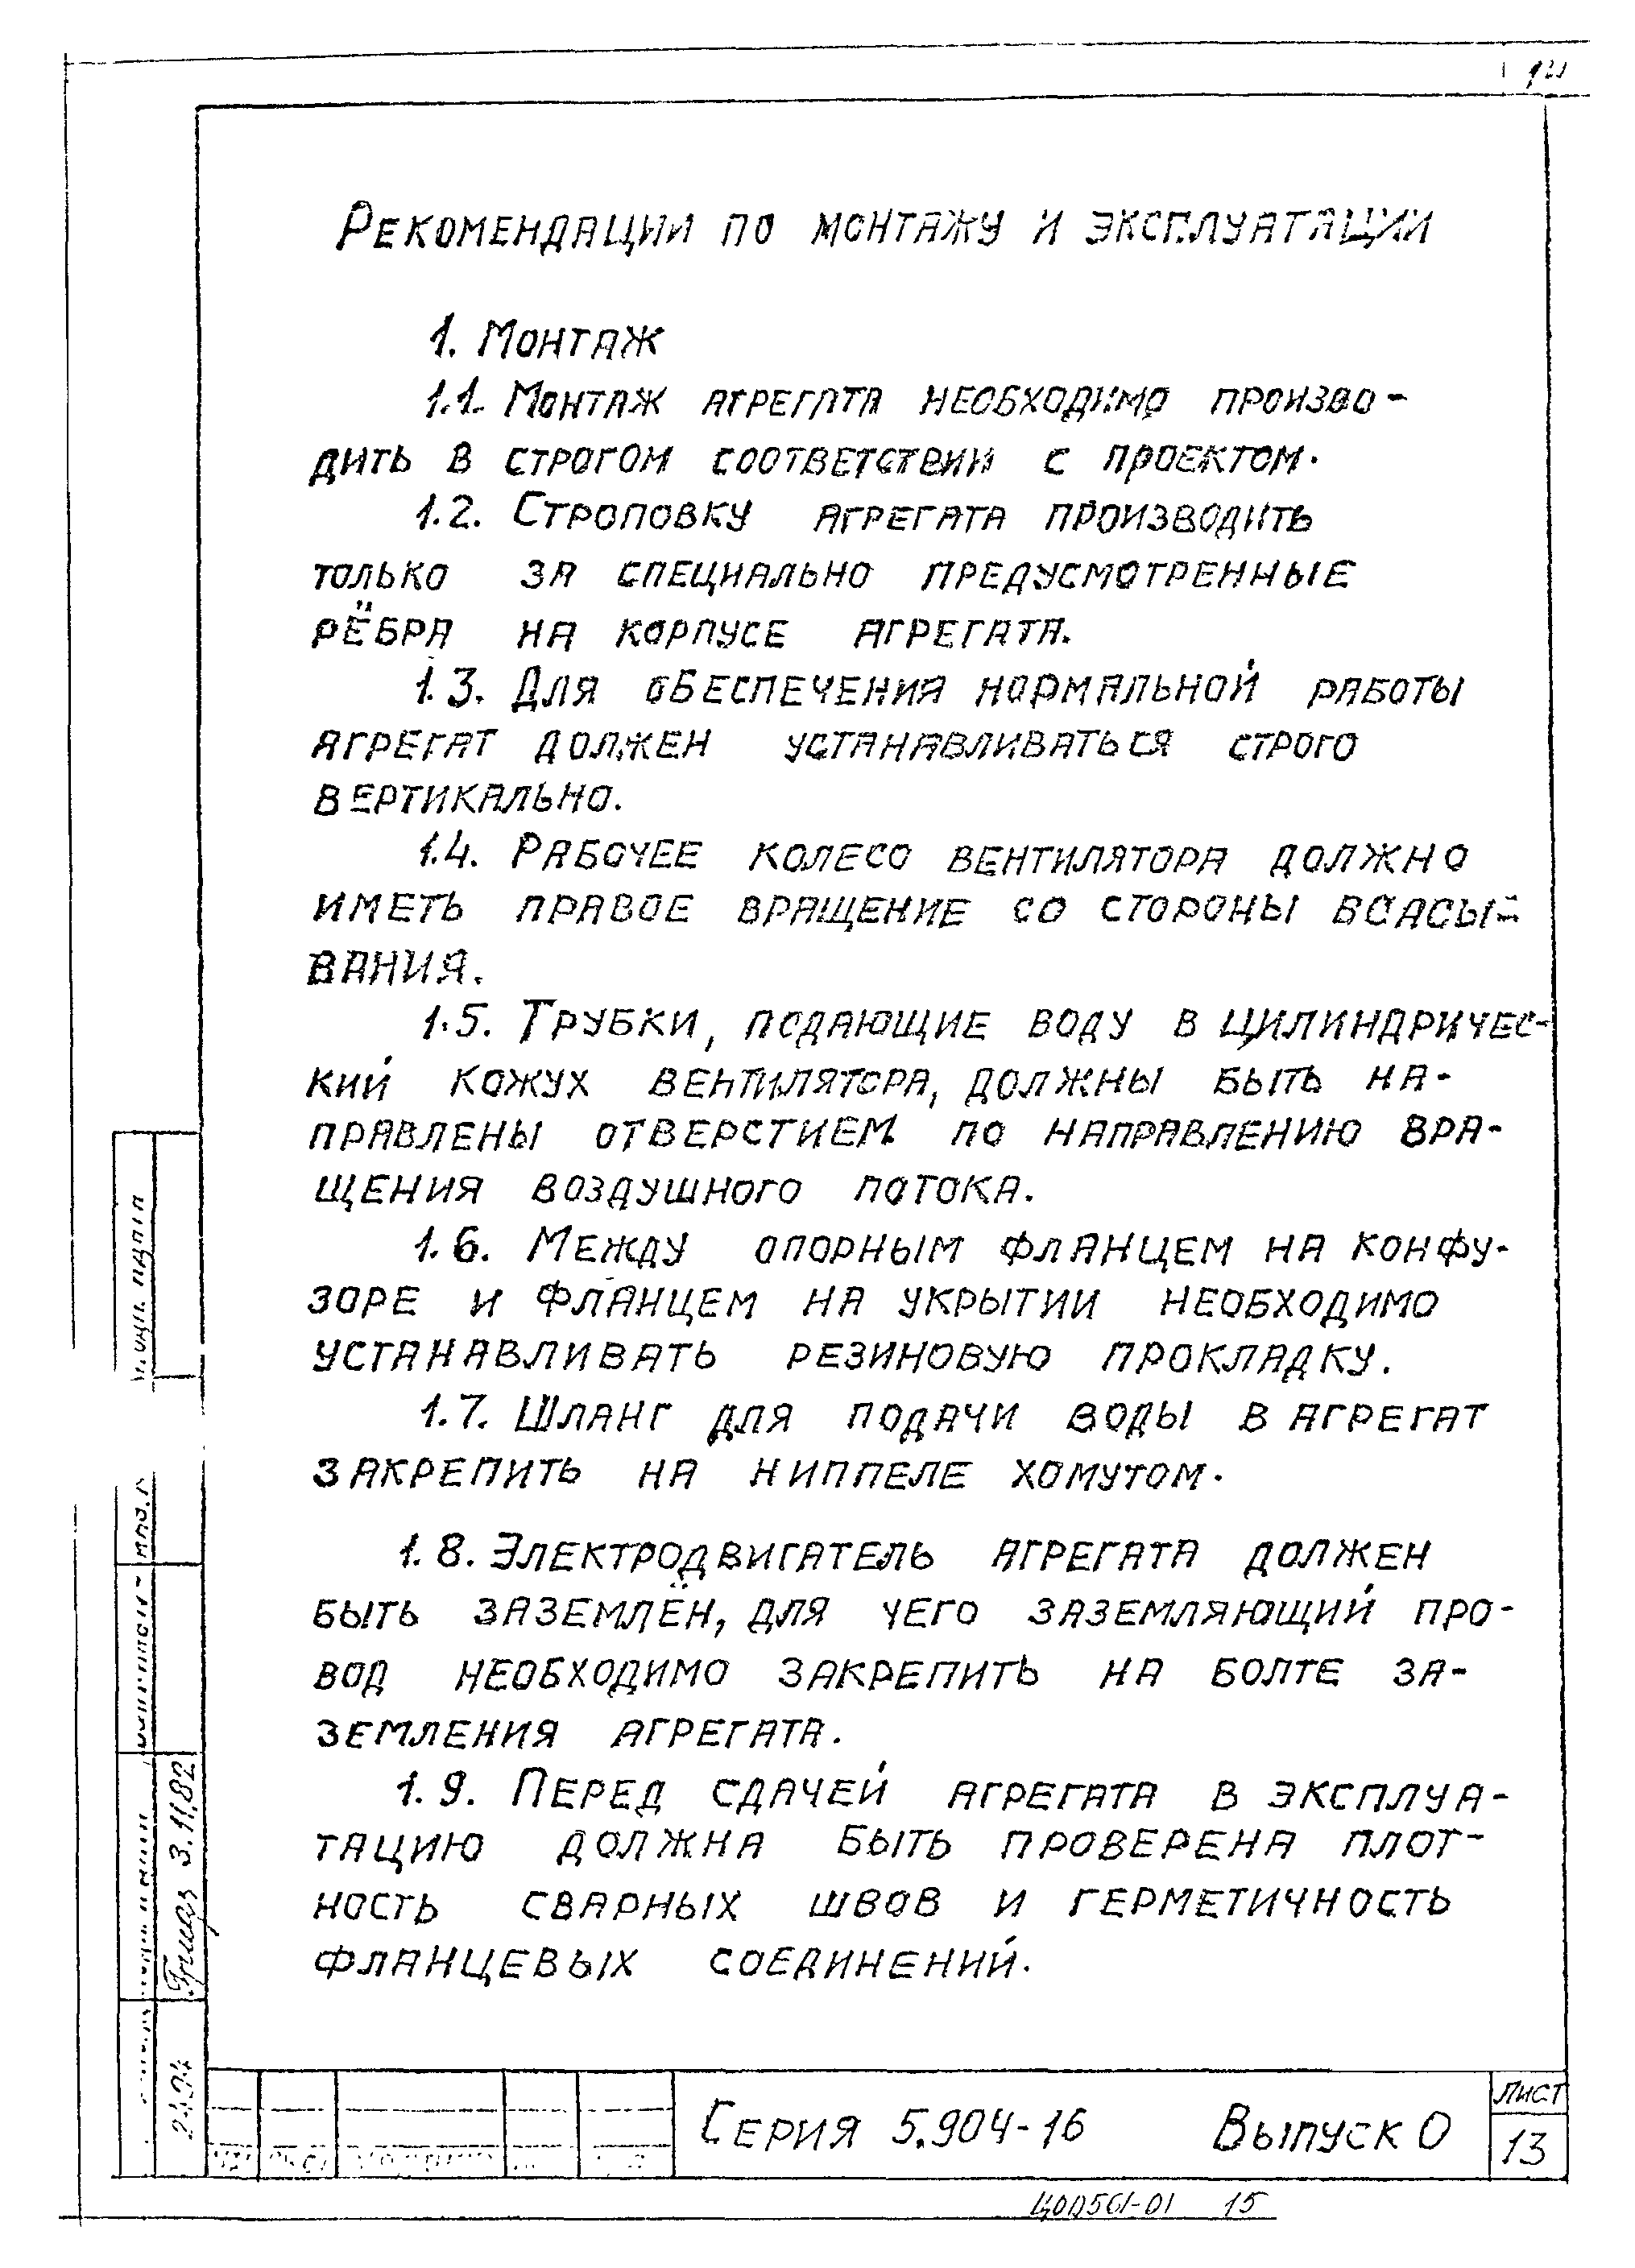 Рекомендации по монтажу и эксплуатации
1. Монтаж
1.1. Монтаж агрегата необходимо произво-
дить в строгом соответствии с проектом.
1.2. Строповку агрегата производить
только за специально предусмотренные
рёбра на корпусе агрегата.
1.3. Для обеспечения нормальной работы
агрегат должен устанавливаться строго
вертикально.
1.4. Рабочее колесо вентилятора должно
иметь правое вращение со стороны всасы-
вания.
1.5. Трубки, подающие воду в цилиндричес-
кий кожух вентилятора, должны быть на-
правлены отверстием по направлению вра-
щения воздушного потока.
1.6. Между опорным фланцем на конфу-
зоре и фланцем на укрытии необходимо
устанавливать резиновую прокладку.
1.7. Шланг для подачи воды в агрегат
закрепить на ниппеле хомутом.
1.8. Электродвигатель агрегата должен
быть заземлён, для чего заземляющий про-
вод необходимо закрепить на болте за-
земления агрегата.
1.9. Перед сдачей агрегата в эксплуа-
тацию должна быть проверена плот-
ность сварных швов и герметичность
фланцевых соединений.
3.11.82
Серия 5.904-16 Выпуск 0
Лист
13
15